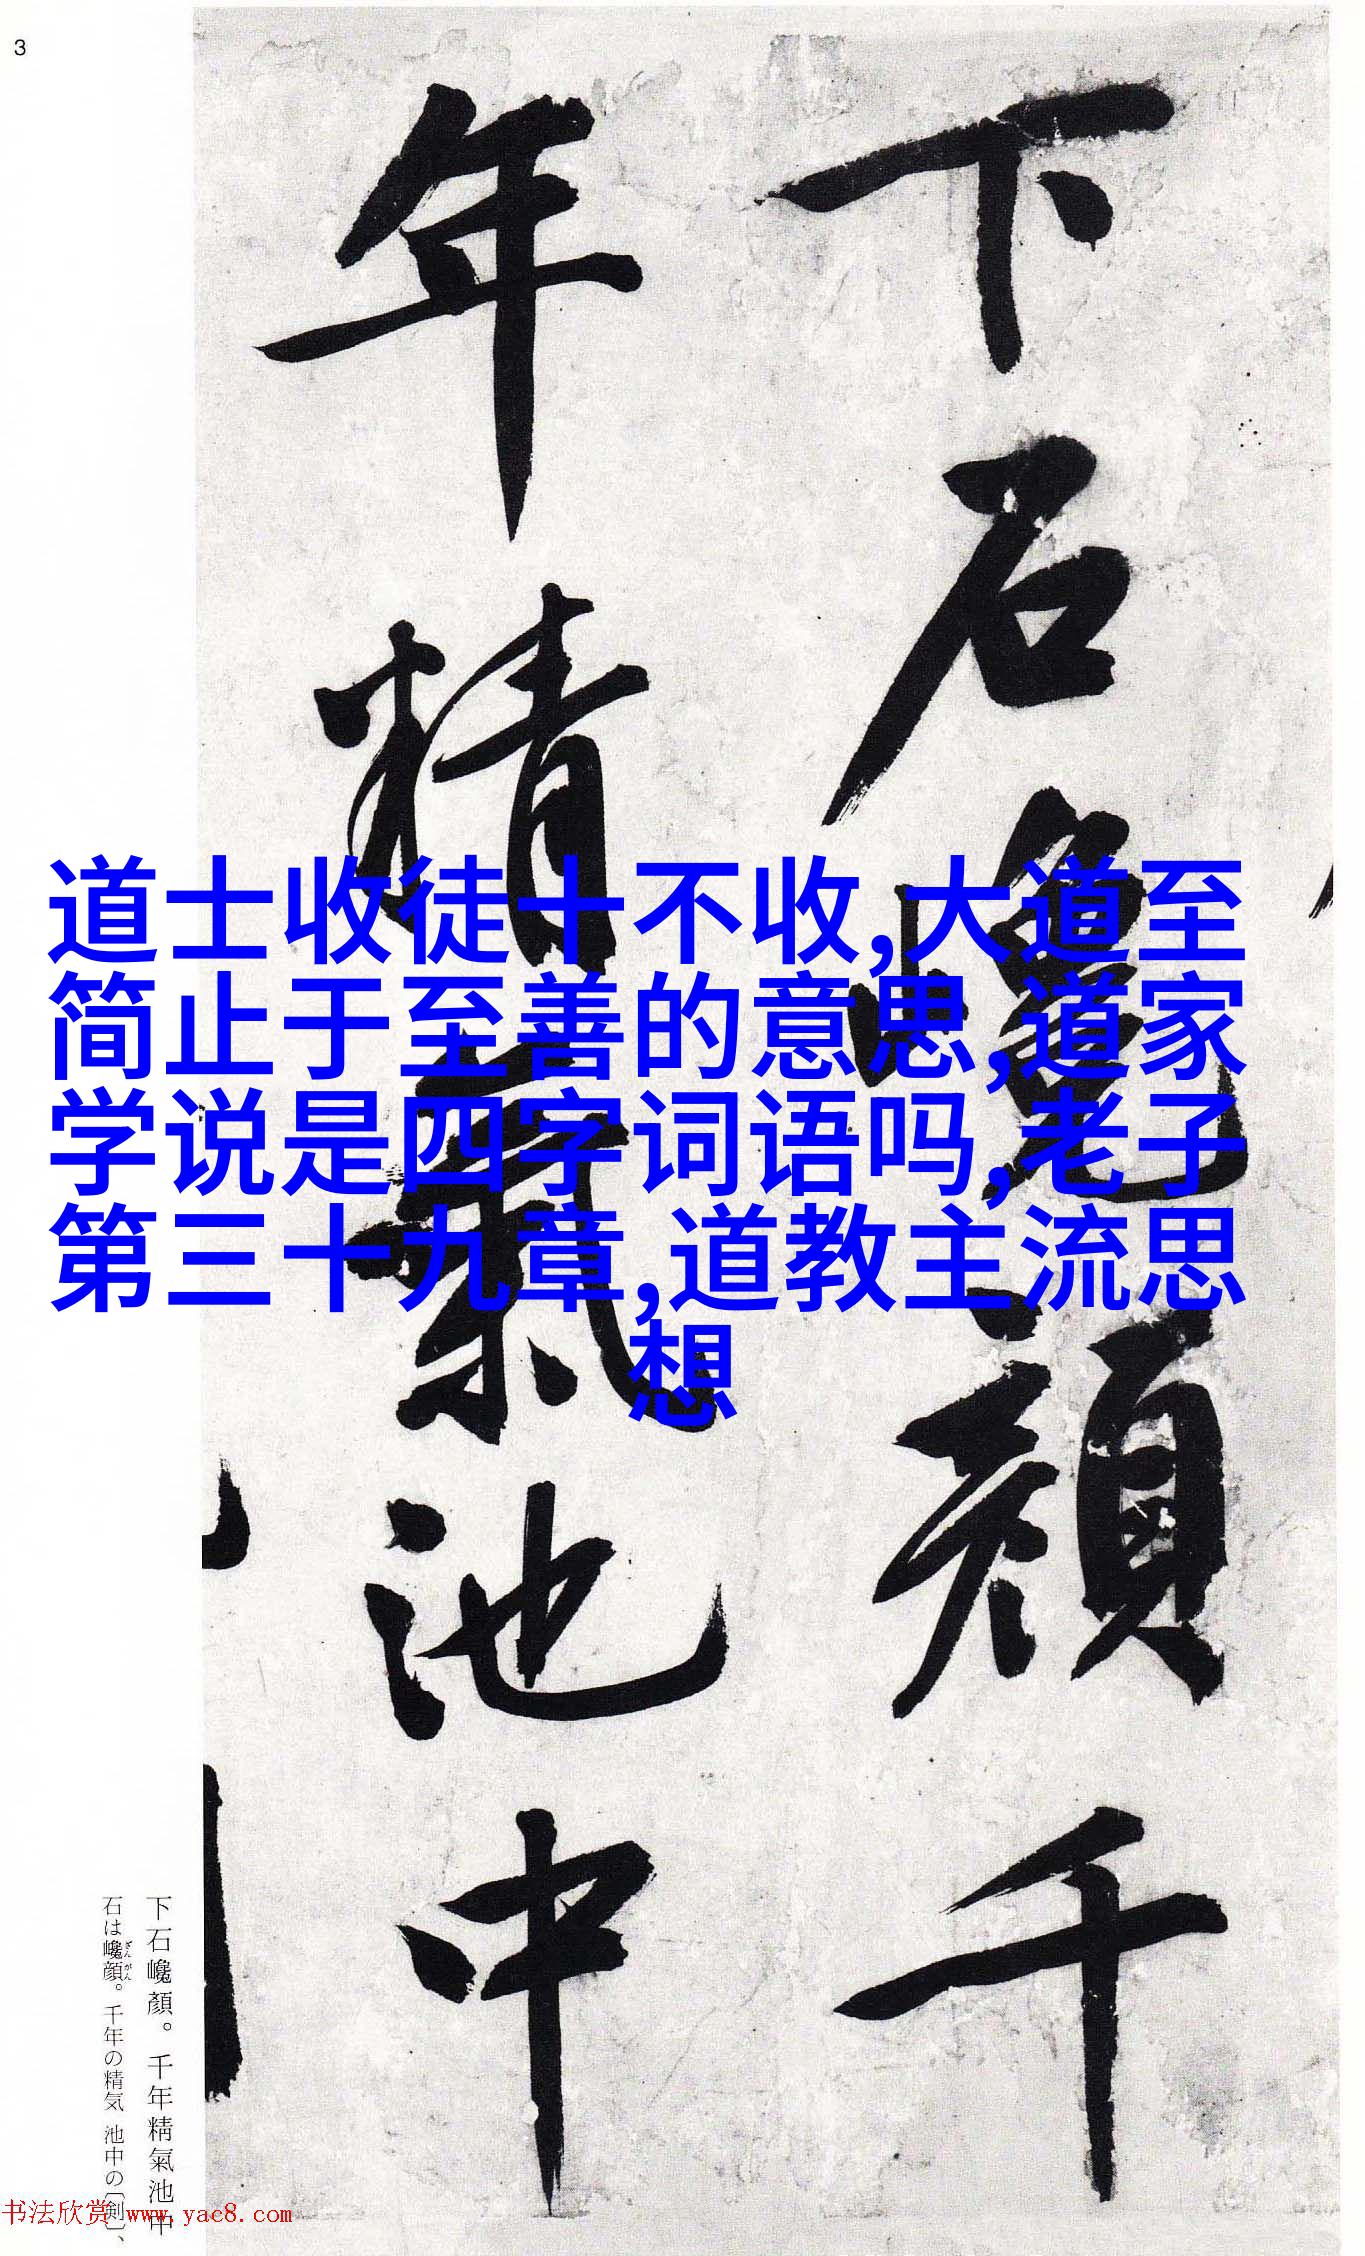 3
下石巉顏千
年精氣池中
道士收徒十不收,大道至
简止于至善的意思,道家
学说是四字词语吗,老子
第三十九章,道教主流思
想
下石巉顏。千年精氣池中
石は巉顔。千年の精気 池中の〔剣〕、
ざんがん
书法欣赏 www.yac8.com